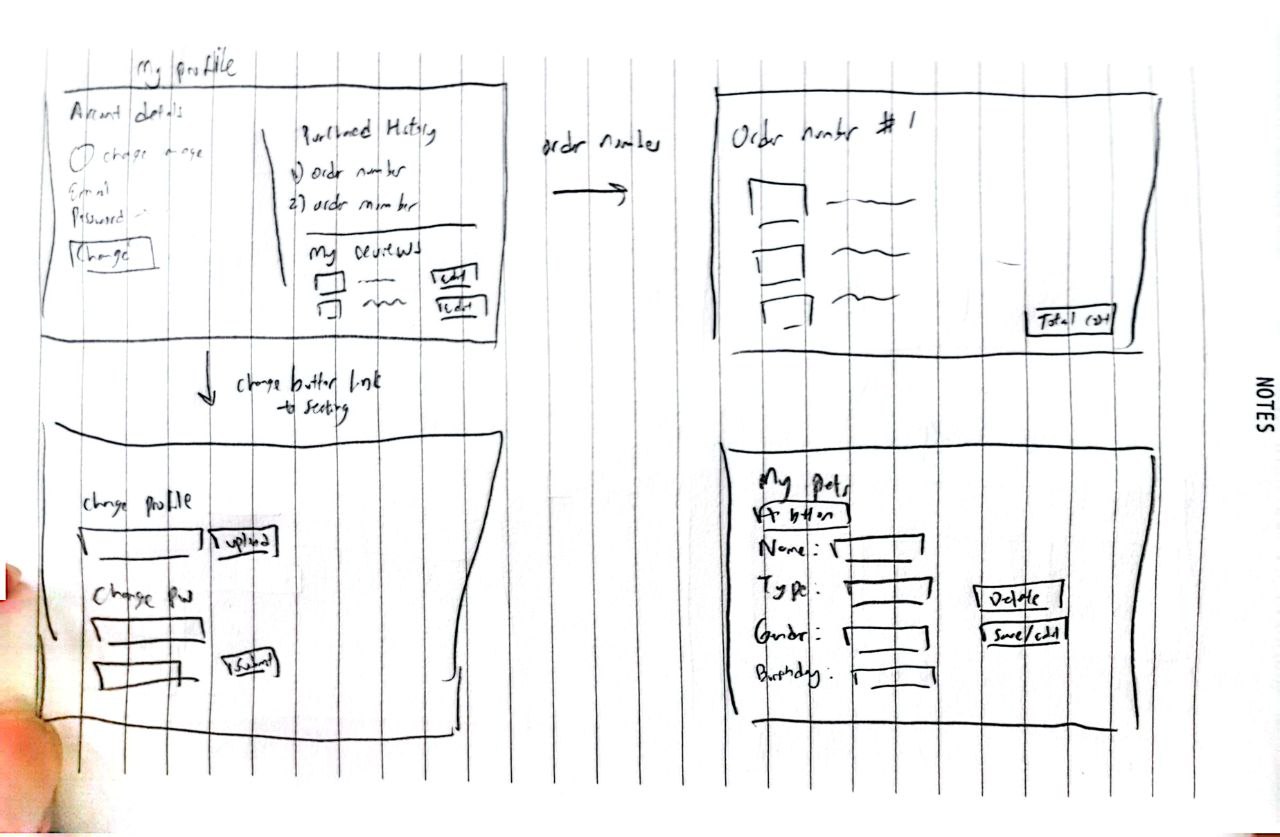 My profile
Account details
change image
Email
Password
Change
Purchased History
1) order number
2) order number
My reviews
edit
edit
order number
Order number #1
Total cost
change button link
to setting
Change profile
upload
Change pw
Submit
My pets
+ button
Name:
Type:
Gender:
Birthday:
Delete
Save/edit
NOTES